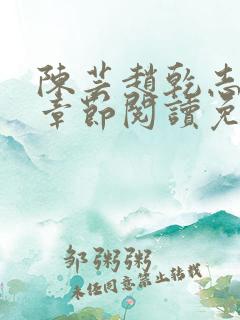 陳芸趙乾志
章節閱讀免
邹粥粥
未经同意禁止转载